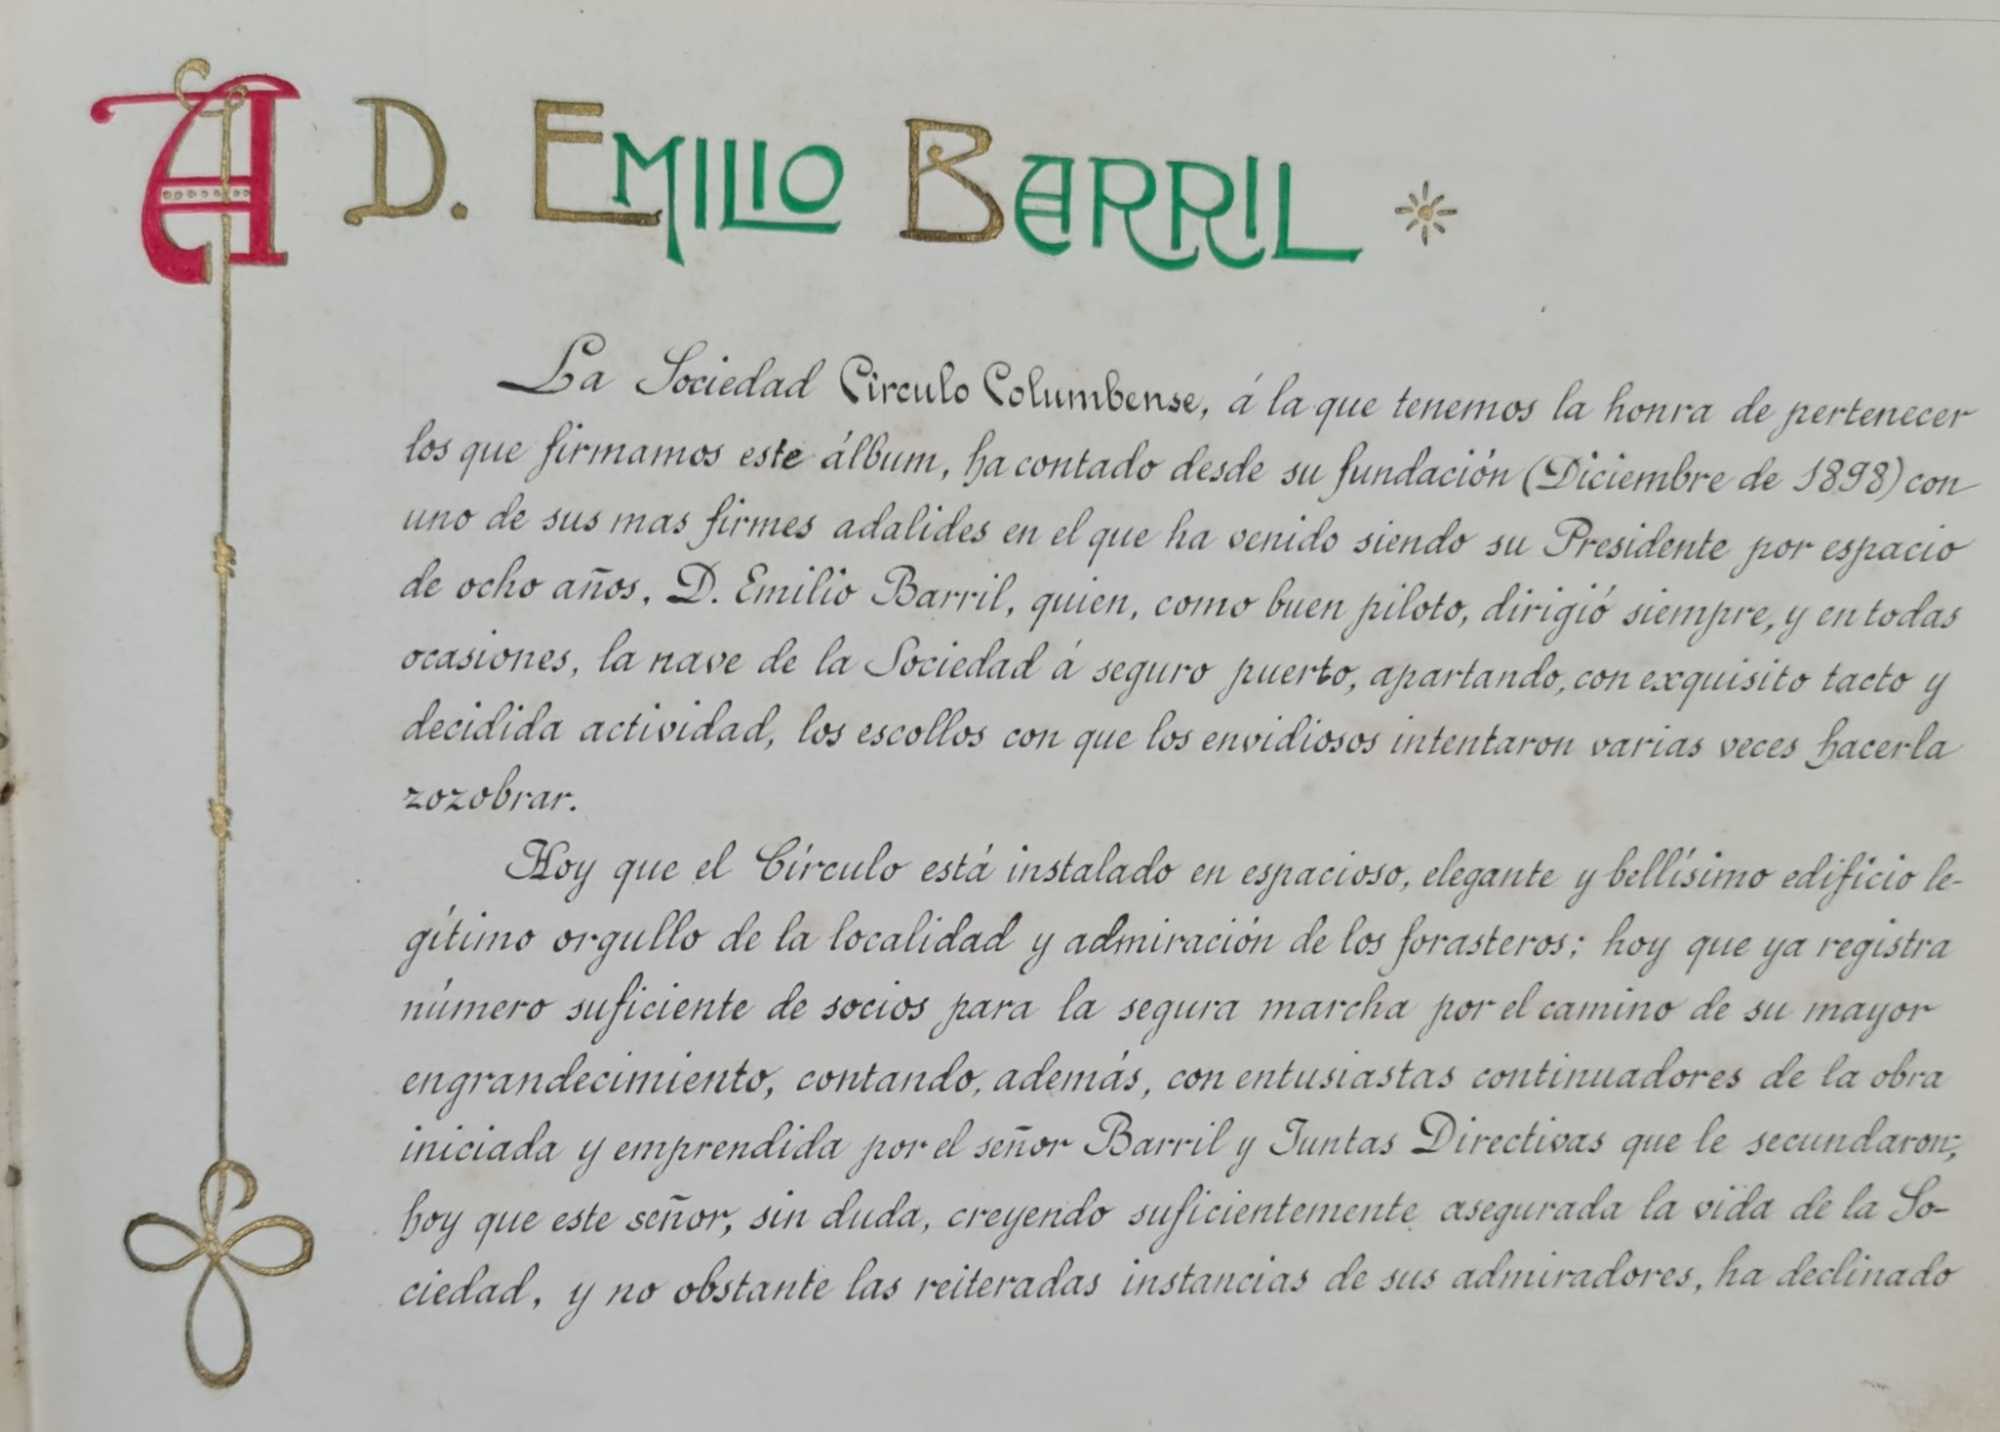 A D. EMILIO BARRIL
La Sociedad Círculo Columbense, á la que tenemos la honra de pertenecer
los que firmamos este álbum, ha contado desde su fundación (Diciembre de 1898) con
uno de sus mas firmes adalides en el que ha venido siendo su Presidente por espacio
de ocho años, D. Emilio Barril, quien, como buen piloto, dirigió siempre, y en todas
ocasiones, la nave de la Sociedad á seguro puerto, apartando, con exquisito tacto y
decidida actividad, los escollos con que los envidiosos intentaron varias veces hacerla
zozobrar.
Hoy que el Círculo está instalado en espacioso, elegante y bellísimo edificio le-
gítimo orgullo de la localidad y admiración de los forasteros; hoy que ya registra
número suficiente de socios para la segura marcha por el camino de su mayor
engrandecimiento, contando, además, con entusiastas continuadores de la obra
iniciada y emprendida por el señor Barril y Juntas Directivas que le secundaron;
hoy que este señor, sin duda, creyendo suficientemente asegurada la vida de la So-
ciedad, y no obstante las reiteradas instancias de sus admiradores, ha declinado